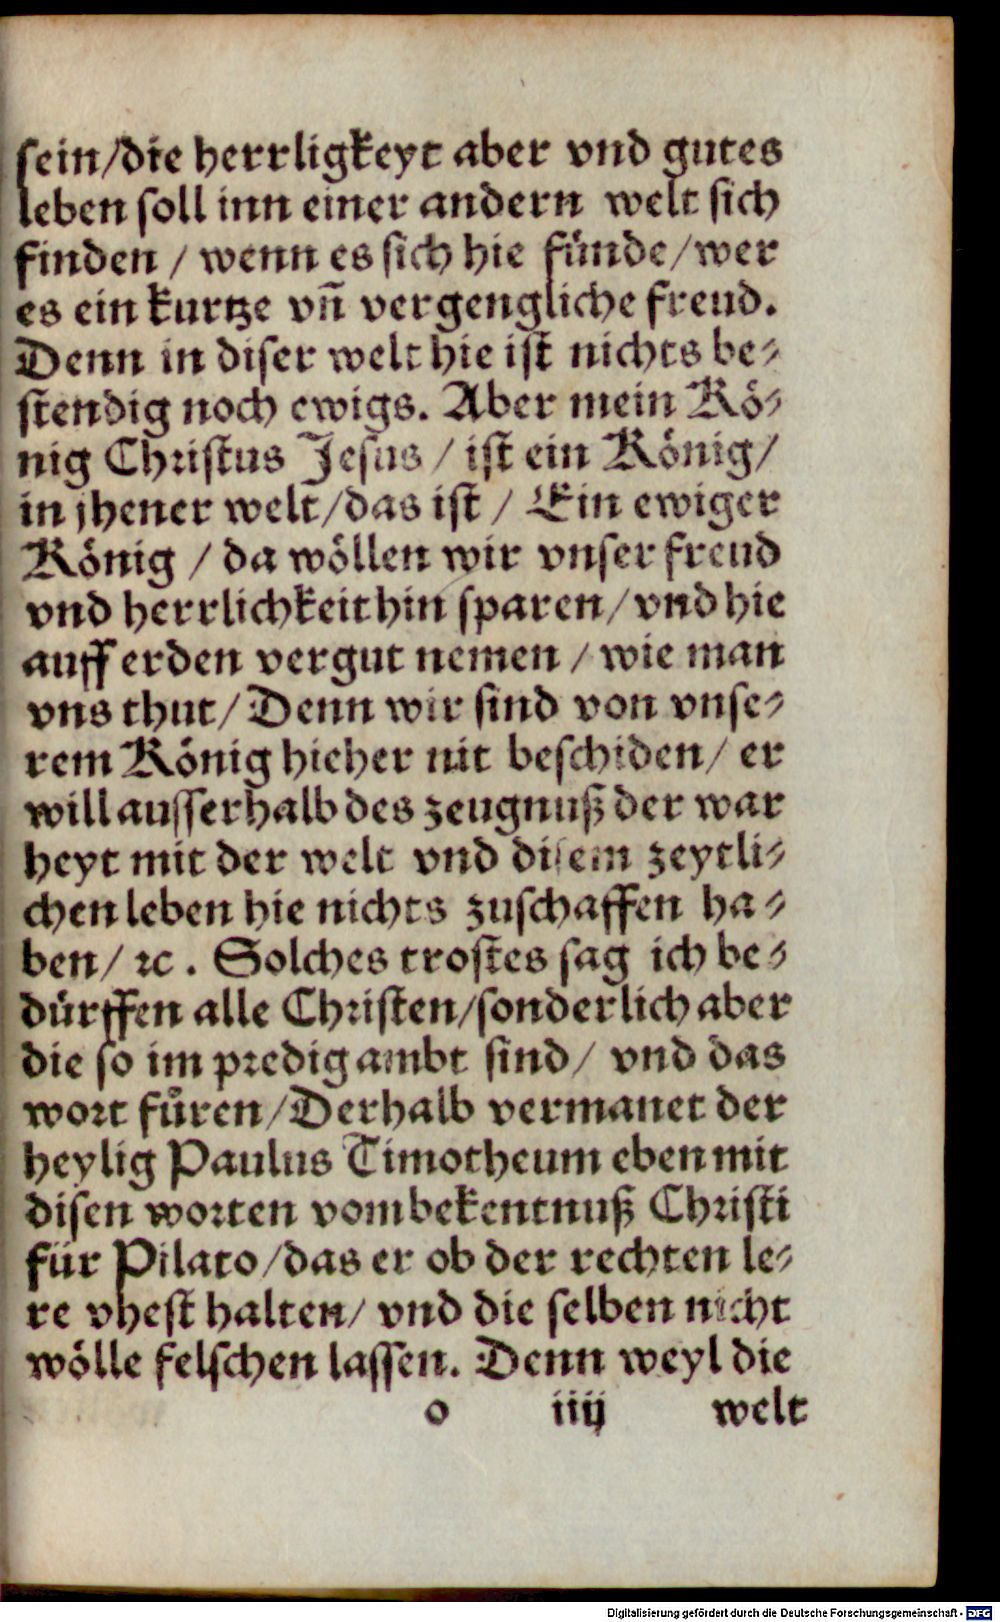 sein/die herrligkeyt aber vnd gutes
leben soll inn einer andern welt sich
finden / wenn es sich hie fünde/wer
es ein kurtze vñ vergengliche freud.
Denn in diser welt hie ist nichts be⸗
stendig noch ewigs. Aber mein Kö⸗
nig Christus Jesus / ist ein König/
in jhener welt/das ist / Ein ewiger
König / da wöllen wir vnser freud
vnd herrlichkeit hin sparen/vnd hie
auff erden vergut nemen / wie man
vns thut/ Denn wir sind von vnse⸗
rem König hieher nit beschiden/ er
will ausserhalb des zeugnuß der war
heyt mit der welt vnd disem zeytli⸗
chen leben hie nichts zuschaffen ha⸗
ben/ ꝛc. Solches trostes sag ich be⸗
dürffen alle Christen/sonderlich aber
die so im predig ambt sind/ vnd das
wort fůren/Derhalb vermanet der
heylig Paulus Timotheum eben mit
disen worten vom bekentnuß Christi
für Pilato/das er ob der rechten le⸗
re vhest halten/ vnd die selben nicht
wölle felschen lassen. Denn weyl die
o iiij welt
Digitalisierung gefördert durch die Deutsche Forschungsgemeinschaft - DFG